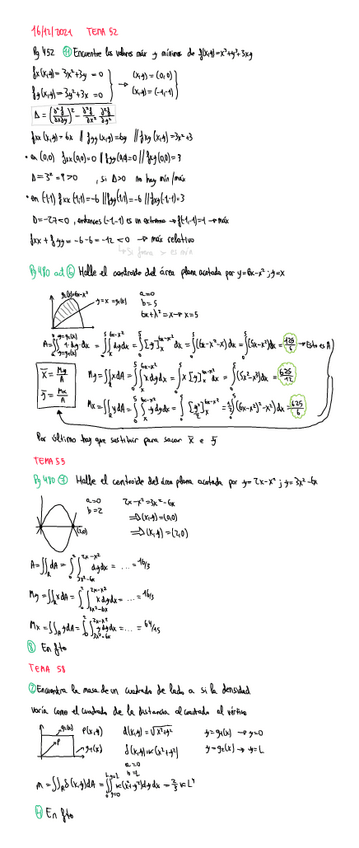 16/12/2021 TEMA 52
Pg 452 ⑪ Encuentre los valores máx y mínimos de f(x,y)=x³+y³+3xy
fx(x,y)=3x²+3y=0
fy(x,y)=3y²+3x=0
(x,y)=(0,0)
(x,y)=(-1,-1)
Δ = (∂²f/∂x∂y)² - ∂²f/∂x² ∂²f/∂y²
fxx(x,y)=6x // fyy(x,y)=6y // fxy(x,y)=3x²+3
• en (0,0) fxx(0,0)=0 // fyy(0,0)=0 // fxy(0,0)=3
Δ=3²=9>0, si Δ>0 no hay mín/máx
• en (-1,-1) fxx(-1,-1)=-6 // fyy(-1,-1)=-6 // fxy(-1,-1)=3
D=-27<0, entonces (-1,-1) es un extremo → f(-1,-1)=1 → máx
fxx + fyy = -6-6 = -12 <0 → máx relativo
Pg 480 ⑥ Halle el centroide del área plana acotada por y=6x-x² ; y=x
g₂(x)=6x-x²
y=x=g₁(x)
a=0
b=5
6x+x²=x → x=5
A=∫∫ 1·dy dx = ∫∫ dy dx = ∫[y] dx = ∫(6x-x²-x)dx = ∫(5x-x²)dx = 125/6 → Esto es A
x̄ = My/A
ȳ = Mx/A
My=∫∫x dA = ∫∫ x dy dx = ∫x[y] dx = ∫(5x²-x³)dx = 625/12
Mx=∫∫y dA = ∫∫ y dy dx = ∫[y²/2] dx = 1/2∫((6x-x²)²-x²)dx = 625/6
Por último hay que sustituir para sacar x̄ e ȳ
TEMA 53
Pg 480 ⑦ Halle el centroide del área plana acotada por y=2x-x² ; y=3x²-6x
a=0
b=2
2x-x²=3x²-6x
⇒(x,y)=(0,0)
⇒(x,y)=(2,0)
(2,0)
A=∫∫dA = ∫∫ dy dx = ... = 16/3
My=∫∫x dA = ∫∫ x dy dx = ... = 16/3
Mx=∫∫y dA = ∫∫ y dy dx = ... = 64/15
⑧ En fto
TEMA 58
② Encuentra la masa de un cuadrado de lado a si la densidad
varía como el cuadrado de la distancia al cuadrado al vértice
g₂(x)
P
g₁(x)
P(x,y)
d(x,y)=√x²+y²
δ(x,y)=k(x²+y²)
a=0
b=L
y=g₁(x) → y=0
y=g₂(x) → y=L
m=∫∫δ(x,y)dA = ∫∫ k(x²+y²)dy dx = 2/3 k L⁴
En fto